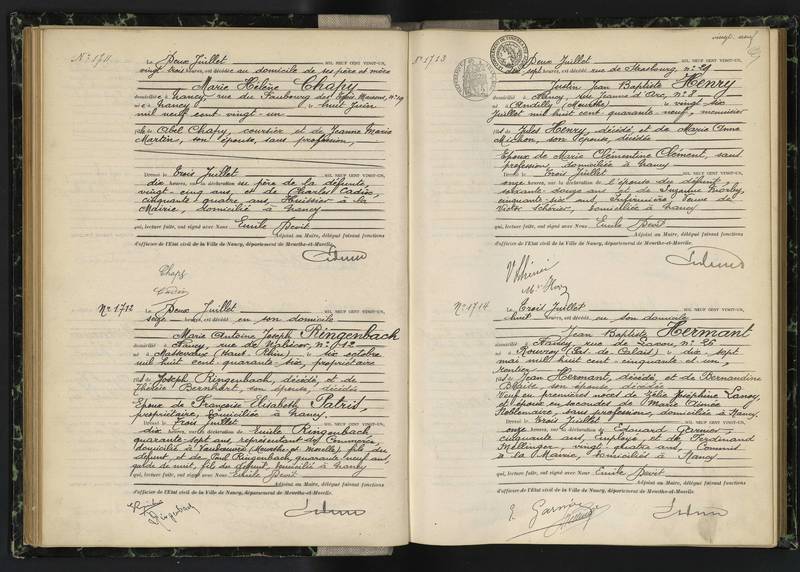 N° 1711
Le Deux Juillet MIL NEUF CENT VINGT-UN,
vingt trois heures, est décédée au domicile de ses père et mère
Marie Hélène Chapy
domiciliée à Nancy, rue du Faubourg des Trois Maisons, n° 19
née à Nancy le huit Juin
mil neuf cent vingt-un
fille de Abel Chapy, coursier et de Jeanne Marie
Martins, son épouse, sans profession,
Dressé le Trois Juillet MIL NEUF CENT VINGT-UN,
dix heures, sur la déclaration du père de la défunte
vingt cinq ans, et de Charles Cadix,
cinquante quatre ans, Huissier à la
Mairie, domicilié à Nancy
qui, lecture faite, ont signé avec Nous Emile Devit
Adjoint au Maire, délégué faisant fonctions
d'officier de l'Etat civil de la Ville de Nancy, département de Meurthe-et-Moselle.
Chapy
N° 1712
Le Deux Juillet MIL NEUF CENT VINGT-UN,
seize heures, est décédé en son domicile
Marie Antoine Joseph Ringenbach
domicilié à Nancy, rue de n° 12
né à Massevaux (Haut-Rhin) le six octobre
mil huit cent quarante-six, propriétaire
fils de Joseph Ringenbach, décédé et de
Thérèse Bernhart son épouse, décédée
Epoux de Françoise Elisabeth Patris,
propriétaire, domiciliée à Nancy
Dressé le Trois Juillet MIL NEUF CENT VINGT-UN,
dix heures, sur la déclaration de Emile Ringenbach
quarante-sept ans, représentant de Commerce,
domicilié à Vandoeuvre (Meurthe-et-Moselle) fils du
défunt, et de Paul Ringenbach, quarante-neuf ans,
garde de nuit, fils du défunt, domicilié à Nancy
qui, lecture faite, ont signé avec Nous Emile Devit
Adjoint au Maire, délégué faisant fonctions
d'officier de l'Etat civil de la Ville de Nancy, département de Meurthe-et-Moselle.
Ringenbach
vingt. neuf
N° 1713
Le Deux Juillet MIL NEUF CENT VINGT-UN,
dix sept heures, est décédé rue de Strasbourg, n° 29
Justin Jean Baptiste Henry
domicilié à Nancy, rue Jeanne d'Arc, n° 8
né à Andilly (Meurthe) le vingt six
Juillet mil huit cent quarante-neuf, menuisier
fils de Jules Henry, décédé, et de Marie Anne
Michon, son épouse, décédée
Epoux de Marie Clémentine Clément, sans
profession, domiciliée à Nancy
Dressé le Trois Juillet MIL NEUF CENT VINGT-UN,
onze heures, sur la déclaration de l'épouse du défunt
soixante douze ans et de Suzanne
cinquante-six ans, Infirmière veuve de
Victor Schérier, domiciliée à Nancy
qui, lecture faite, ont signé avec Nous Emile Devit
Adjoint au Maire, délégué faisant fonctions
d'officier de l'Etat civil de la Ville de Nancy, département de Meurthe-et-Moselle.
N° 1714
Le Trois Juillet MIL NEUF CENT VINGT-UN,
huit heures, est décédé en son domicile
Jean Baptiste Hermant
domicilié à Nancy rue de Saxon, n° 26
né à Rouvroy (Pas de Calais) le dix-sept
mai mil huit cent cinquante-et-un,
rentier
fils de Jean Hermant, décédé, et de Bernardine
Blaise, son épouse, décédée
Veuf en premières noces de Zélie Joséphine Lanoy
et époux en secondes de Marie Aimée
Noblemaire, sans profession, domiciliée à Nancy.
Dressé le Trois Juillet MIL NEUF CENT VINGT-UN,
onze heures, sur la déclaration de Edouard Garnier
cinquante ans, Employé, et de Ferdinand
Mellinger, vingt quatre ans, Commis
à la Mairie, domiciliés à Nancy
qui, lecture faite, ont signé avec Nous Emile Devit
Adjoint au Maire, délégué faisant fonctions
d'officier de l'Etat civil de la Ville de Nancy, département de Meurthe-et-Moselle.
E. Garnier